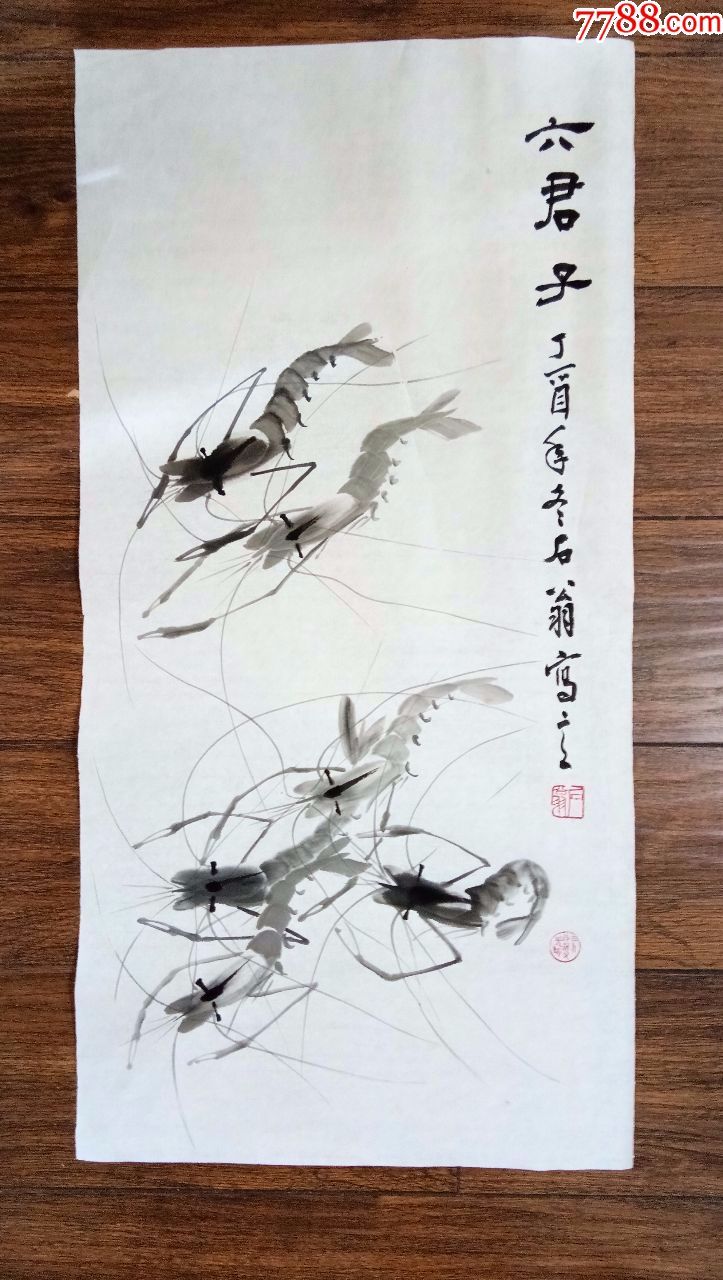 7788.com
六君子
丁酉年冬石翁写之
石翁